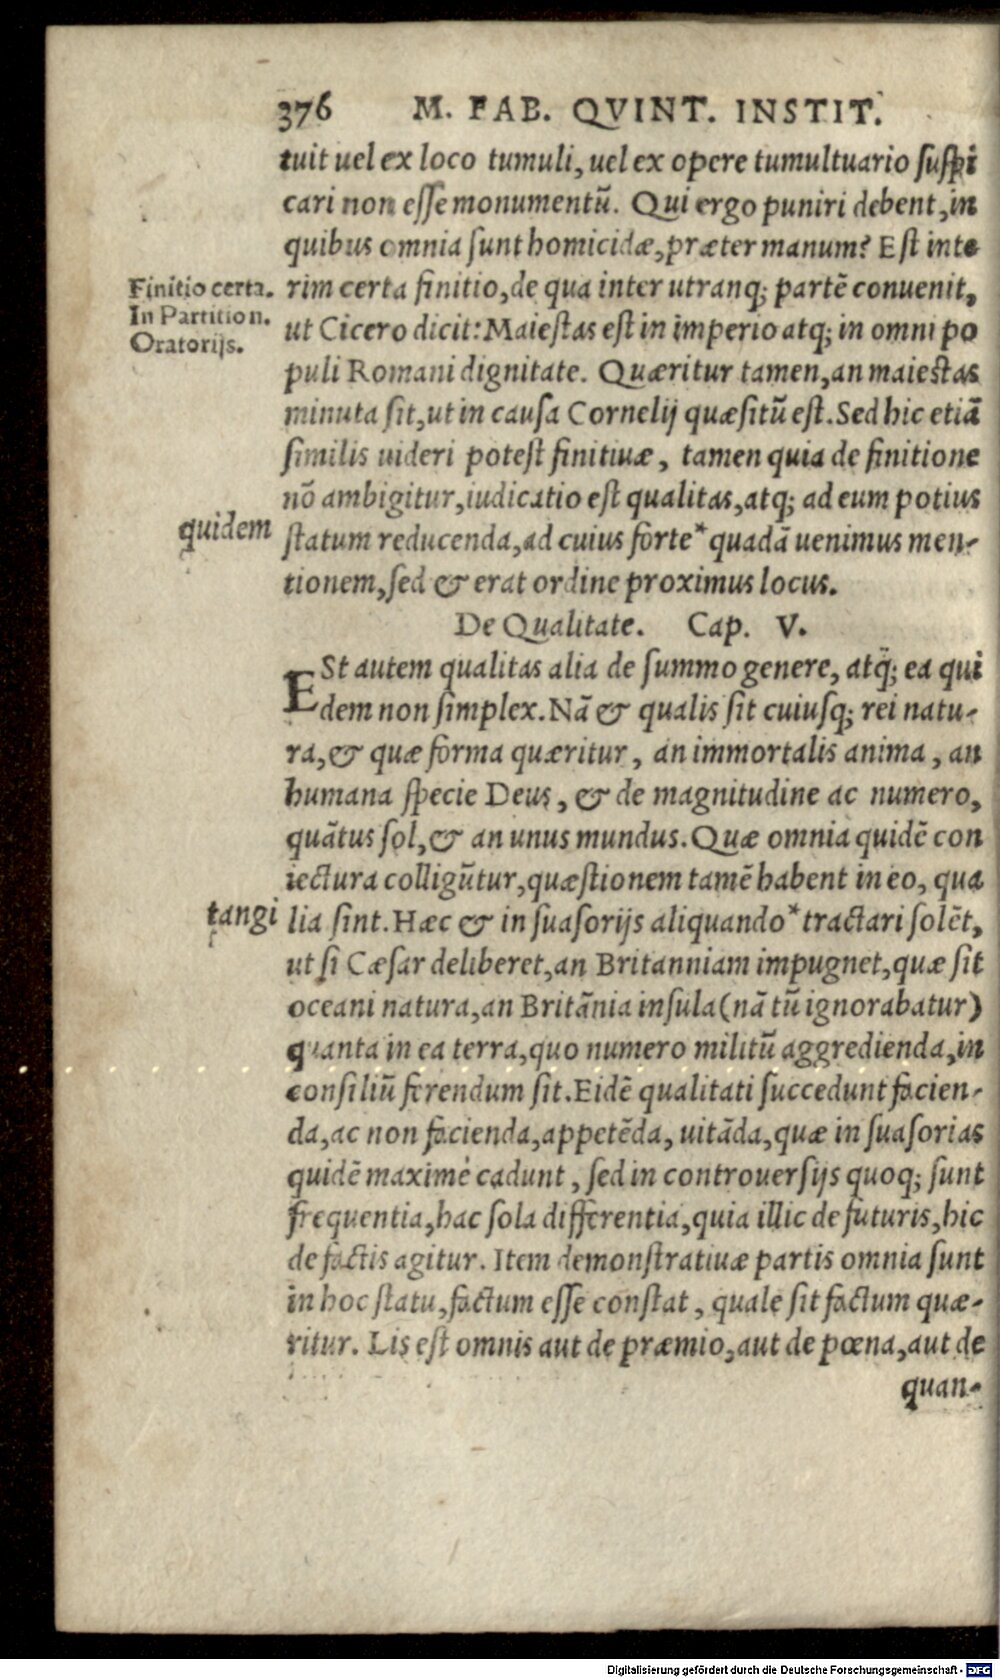 376 M. FAB. QVINT. INSTIT.
tuit uel ex loco tumuli, uel ex opere tumultuario suspi
cari non esse monumentū. Qui ergo puniri debent, in
quibus omnia sunt homicidæ, præter manum? Est inte
Finitio certa.
In Partition.
Oratorijs.
rim certa finitio, de qua inter utranq; partē conuenit,
ut Cicero dicit: Maiestas est in imperio atq; in omni po
puli Romani dignitate. Quæritur tamen, an maiestas
minuta sit, ut in causa Cornelij quæsitū est. Sed hic etiā
similis uideri potest finitiuæ, tamen quia de finitione
nō ambigitur, iudicatio est qualitas, atq; ad eum potius
quidem
statum reducenda, ad cuius forte* quadā uenimus men-
tionem, sed & erat ordine proximus locus.
De Qualitate. Cap. V.
ESt autem qualitas alia de summo genere, atq̃; ea qui
dem non simplex. Nā & qualis sit cuiusq; rei natu-
ra, & quæ forma quæritur, an immortalis anima, an
humana specie Deus, & de magnitudine ac numero,
quātus sol, & an unus mundus. Quæ omnia quidē con
iectura colligūtur, quæstionem tamē habent in eo, qua
tangi
lia sint. Hæc & in suasorijs aliquando* tractari solēt,
ut si Cæsar deliberet, an Britanniam impugnet, quæ sit
oceani natura, an Britānia insula (nā tū ignorabatur)
quanta in ea terra, quo numero militū aggredienda, in
consiliū ferendum sit. Eidē qualitati succedunt facien-
da, ac non facienda, appetēda, uitāda, quæ in suasorias
quidē maximè cadunt, sed in controuersijs quoq; sunt
frequentia, hac sola differentia, quia illic de futuris, hic
de factis agitur. Item demonstratiuæ partis omnia sunt
in hoc statu, factum esse constat, quale sit factum quæ-
ritur. Lis est omnis aut de præmio, aut de pœna, aut de
quan-
Digitalisierung gefördert durch die Deutsche Forschungsgemeinschaft - DFG